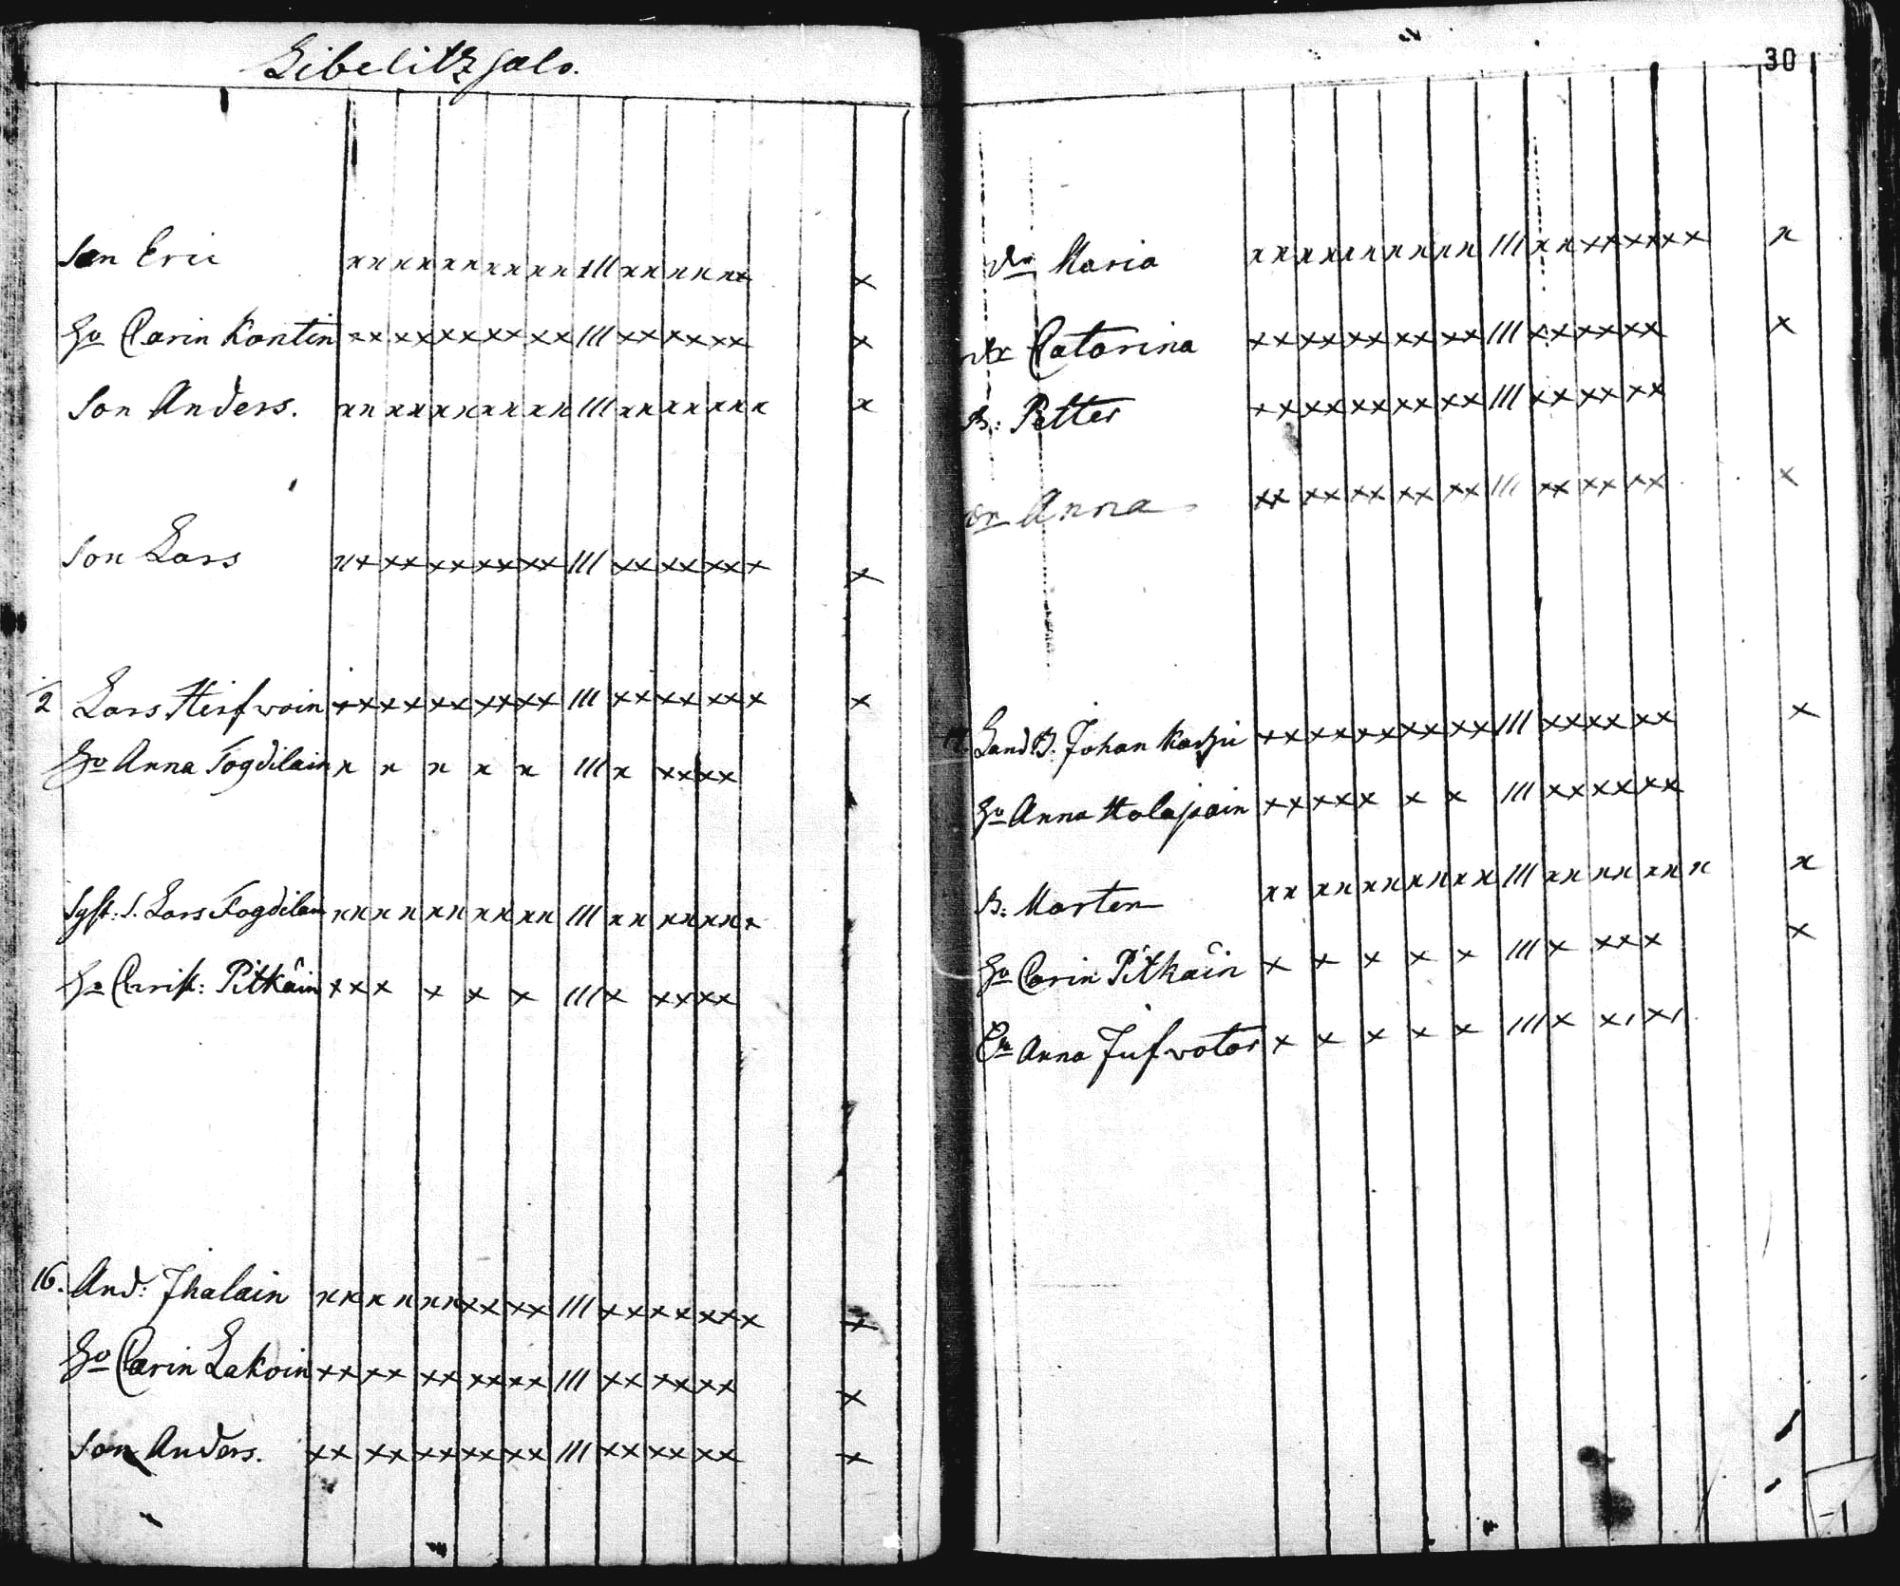 Libelitz salo.
Son Eric xx xx xx xx xx III xx xx xx x
Ho Carin Kontin xx xx xx xx xx III xx xx xx x
Son Anders. xx xx xx xx xx III xx xx xx x x
Son Lars xx xx xx xx xx III xx xx xx x x
2 Lars Hirfwoin xx xx xx xx xx III xx xx xx x x
Ho Anna Fogdilain x x x x x III x xx xx
Syst: S. Lars Fogdilain xx xx xx xx xx III xx xx xx x
Ho Christ: Pitkäin xx x x x x III x xx xx
16. And: Ihalain xx xx xx xx xx III xx xx xx x x
Ho Carin Lakoin xx xx xx xx xx III xx xx xx x
Son Anders. xx xx xx xx xx III xx xx xx x
30
Dr Maria xx xx xx xx xx III xx xx xx x x
Dr Catarina xx xx xx xx xx III xx xx xx x
B: Petter xx xx xx xx xx III xx xx xx
Dr Anna xx xx xx xx xx III xx xx xx x
Land B. Johan xx xx xx xx xx III xx xx xx x
Ho Anna Holopain xx xx x x x III xx xx xx
B: Morten xx xx xx xx xx III xx xx xx x x
Ho Carin Pitkäin x x x x x III x xx x x
Anna Jufwotar x x x x x III x